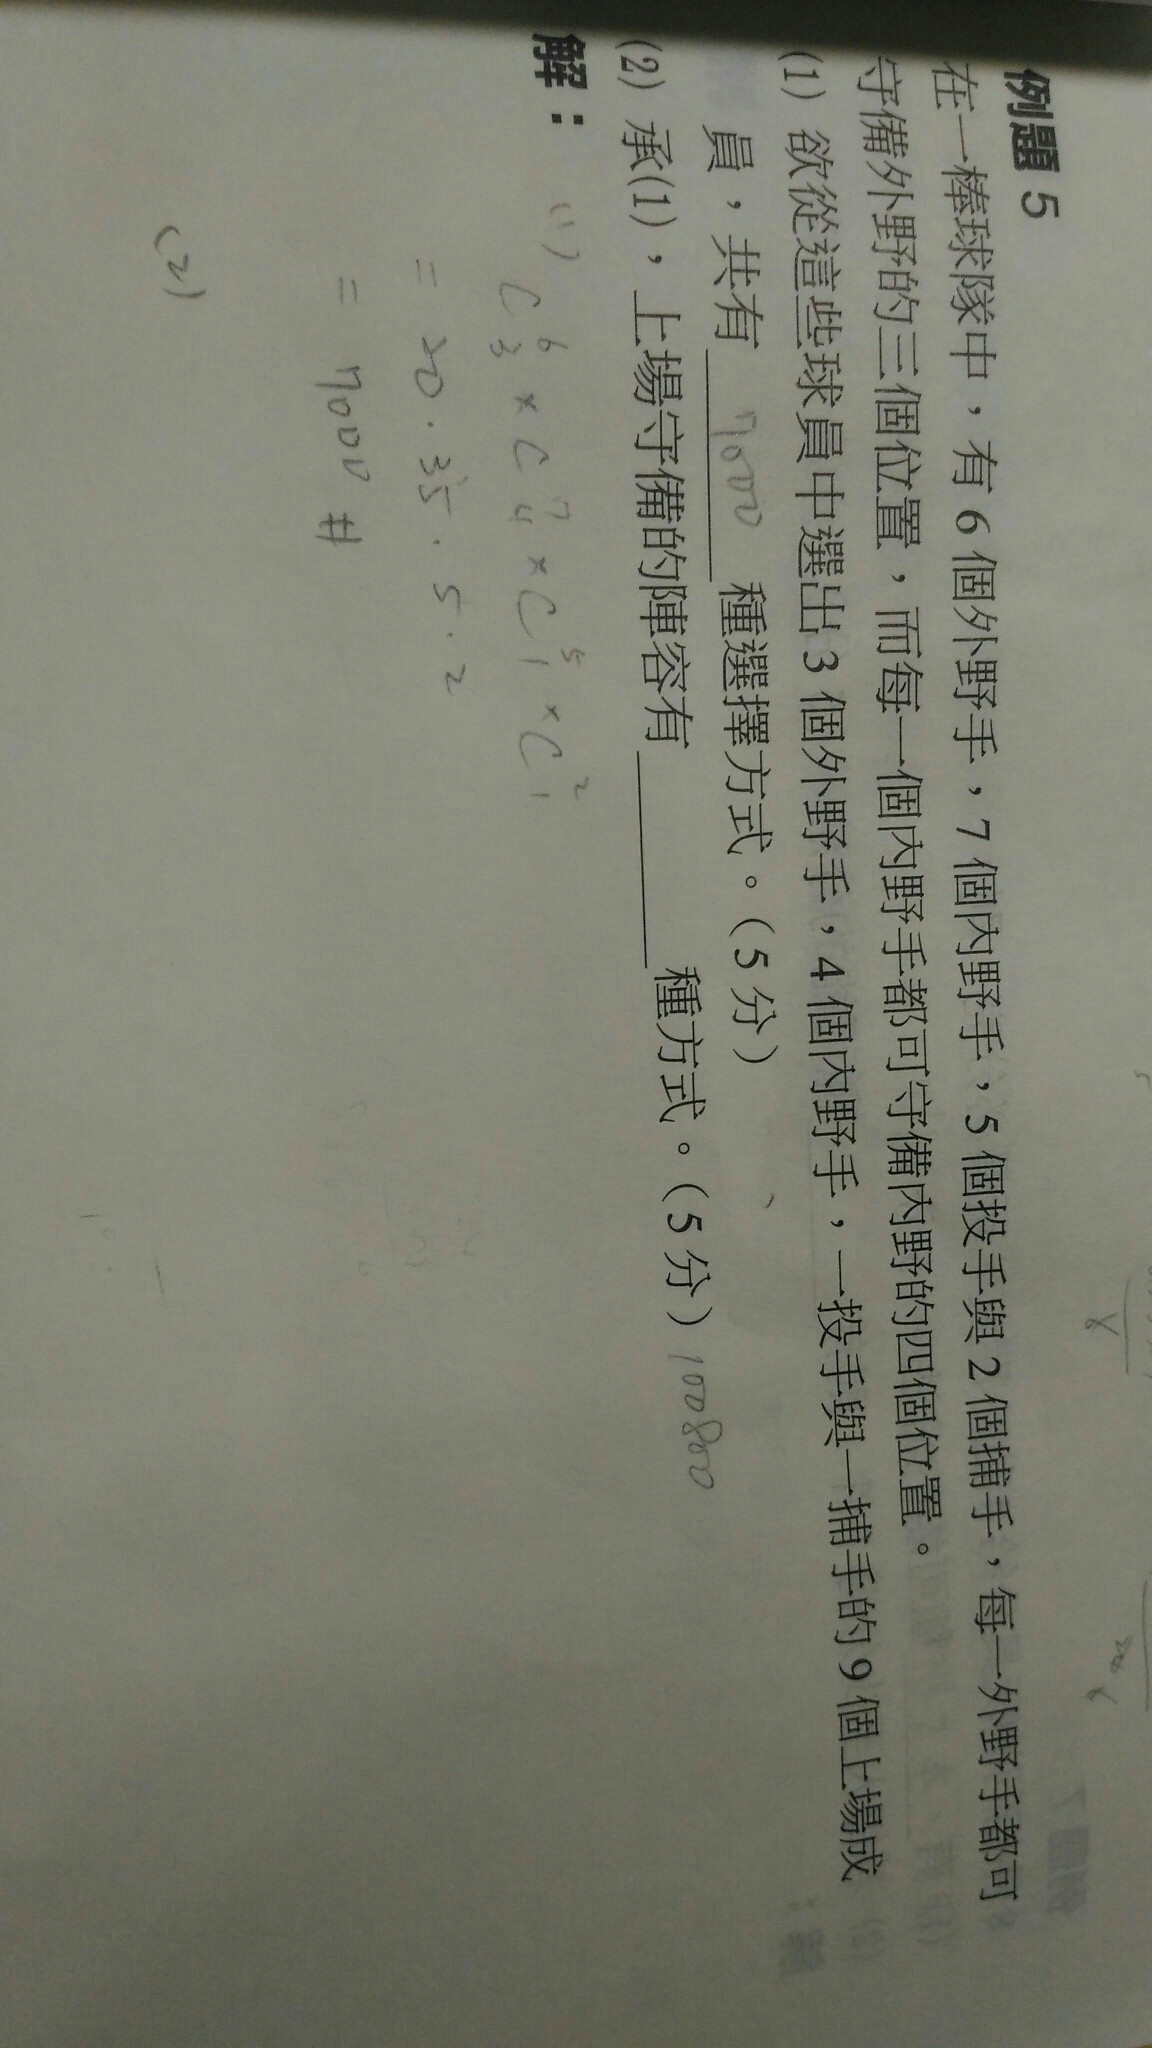 例題 5
在一棒球隊中，有 6 個外野手，7 個內野手，5 個投手與 2 個捕手，每一外野手都可
守備外野的三個位置，而每一個內野手都可守備內野的四個位置。
(1) 欲從這些球員中選出 3 個外野手，4 個內野手，一投手與一捕手的 9 個上場成
員，共有 7000 種選擇方式。(5 分)
(2) 承(1)，上場守備的陣容有______種方式。(5 分) 100800
解：
(1)
C⁶₃ × C⁷₄ × C⁵₁ × C²₁
= 20 · 35 · 5 · 2
= 7000 #
(2)